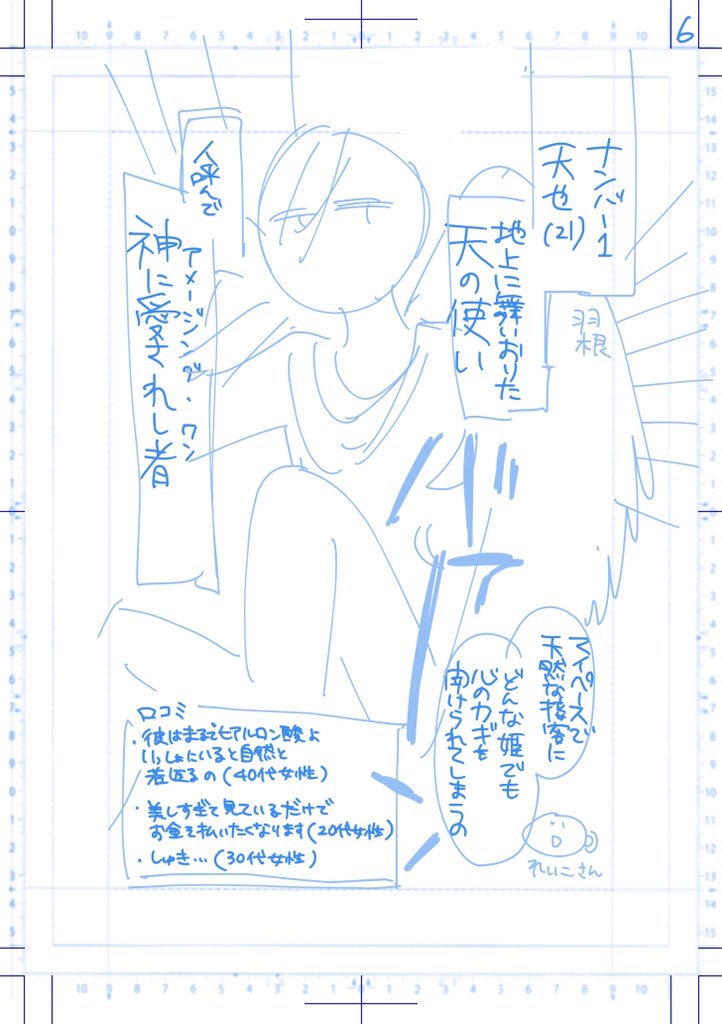 6
ナンバー1
天也(21)
地上に舞いおりた
天の使い
人呼んで
アメージング・ワン
神に愛されし者
羽根
バァーン
マイペースで
天然な接客に
どんな姫でも
心のカギを
開けられてしまうの
れいこさん
口コミ
・彼はまるでヒアルロン酸よ
いっしょにいると自然と
若返るの(40代女性)
・美しすぎて見ているだけで
お金を払いたくなります(20代女性)
・しゅき…(30代女性)